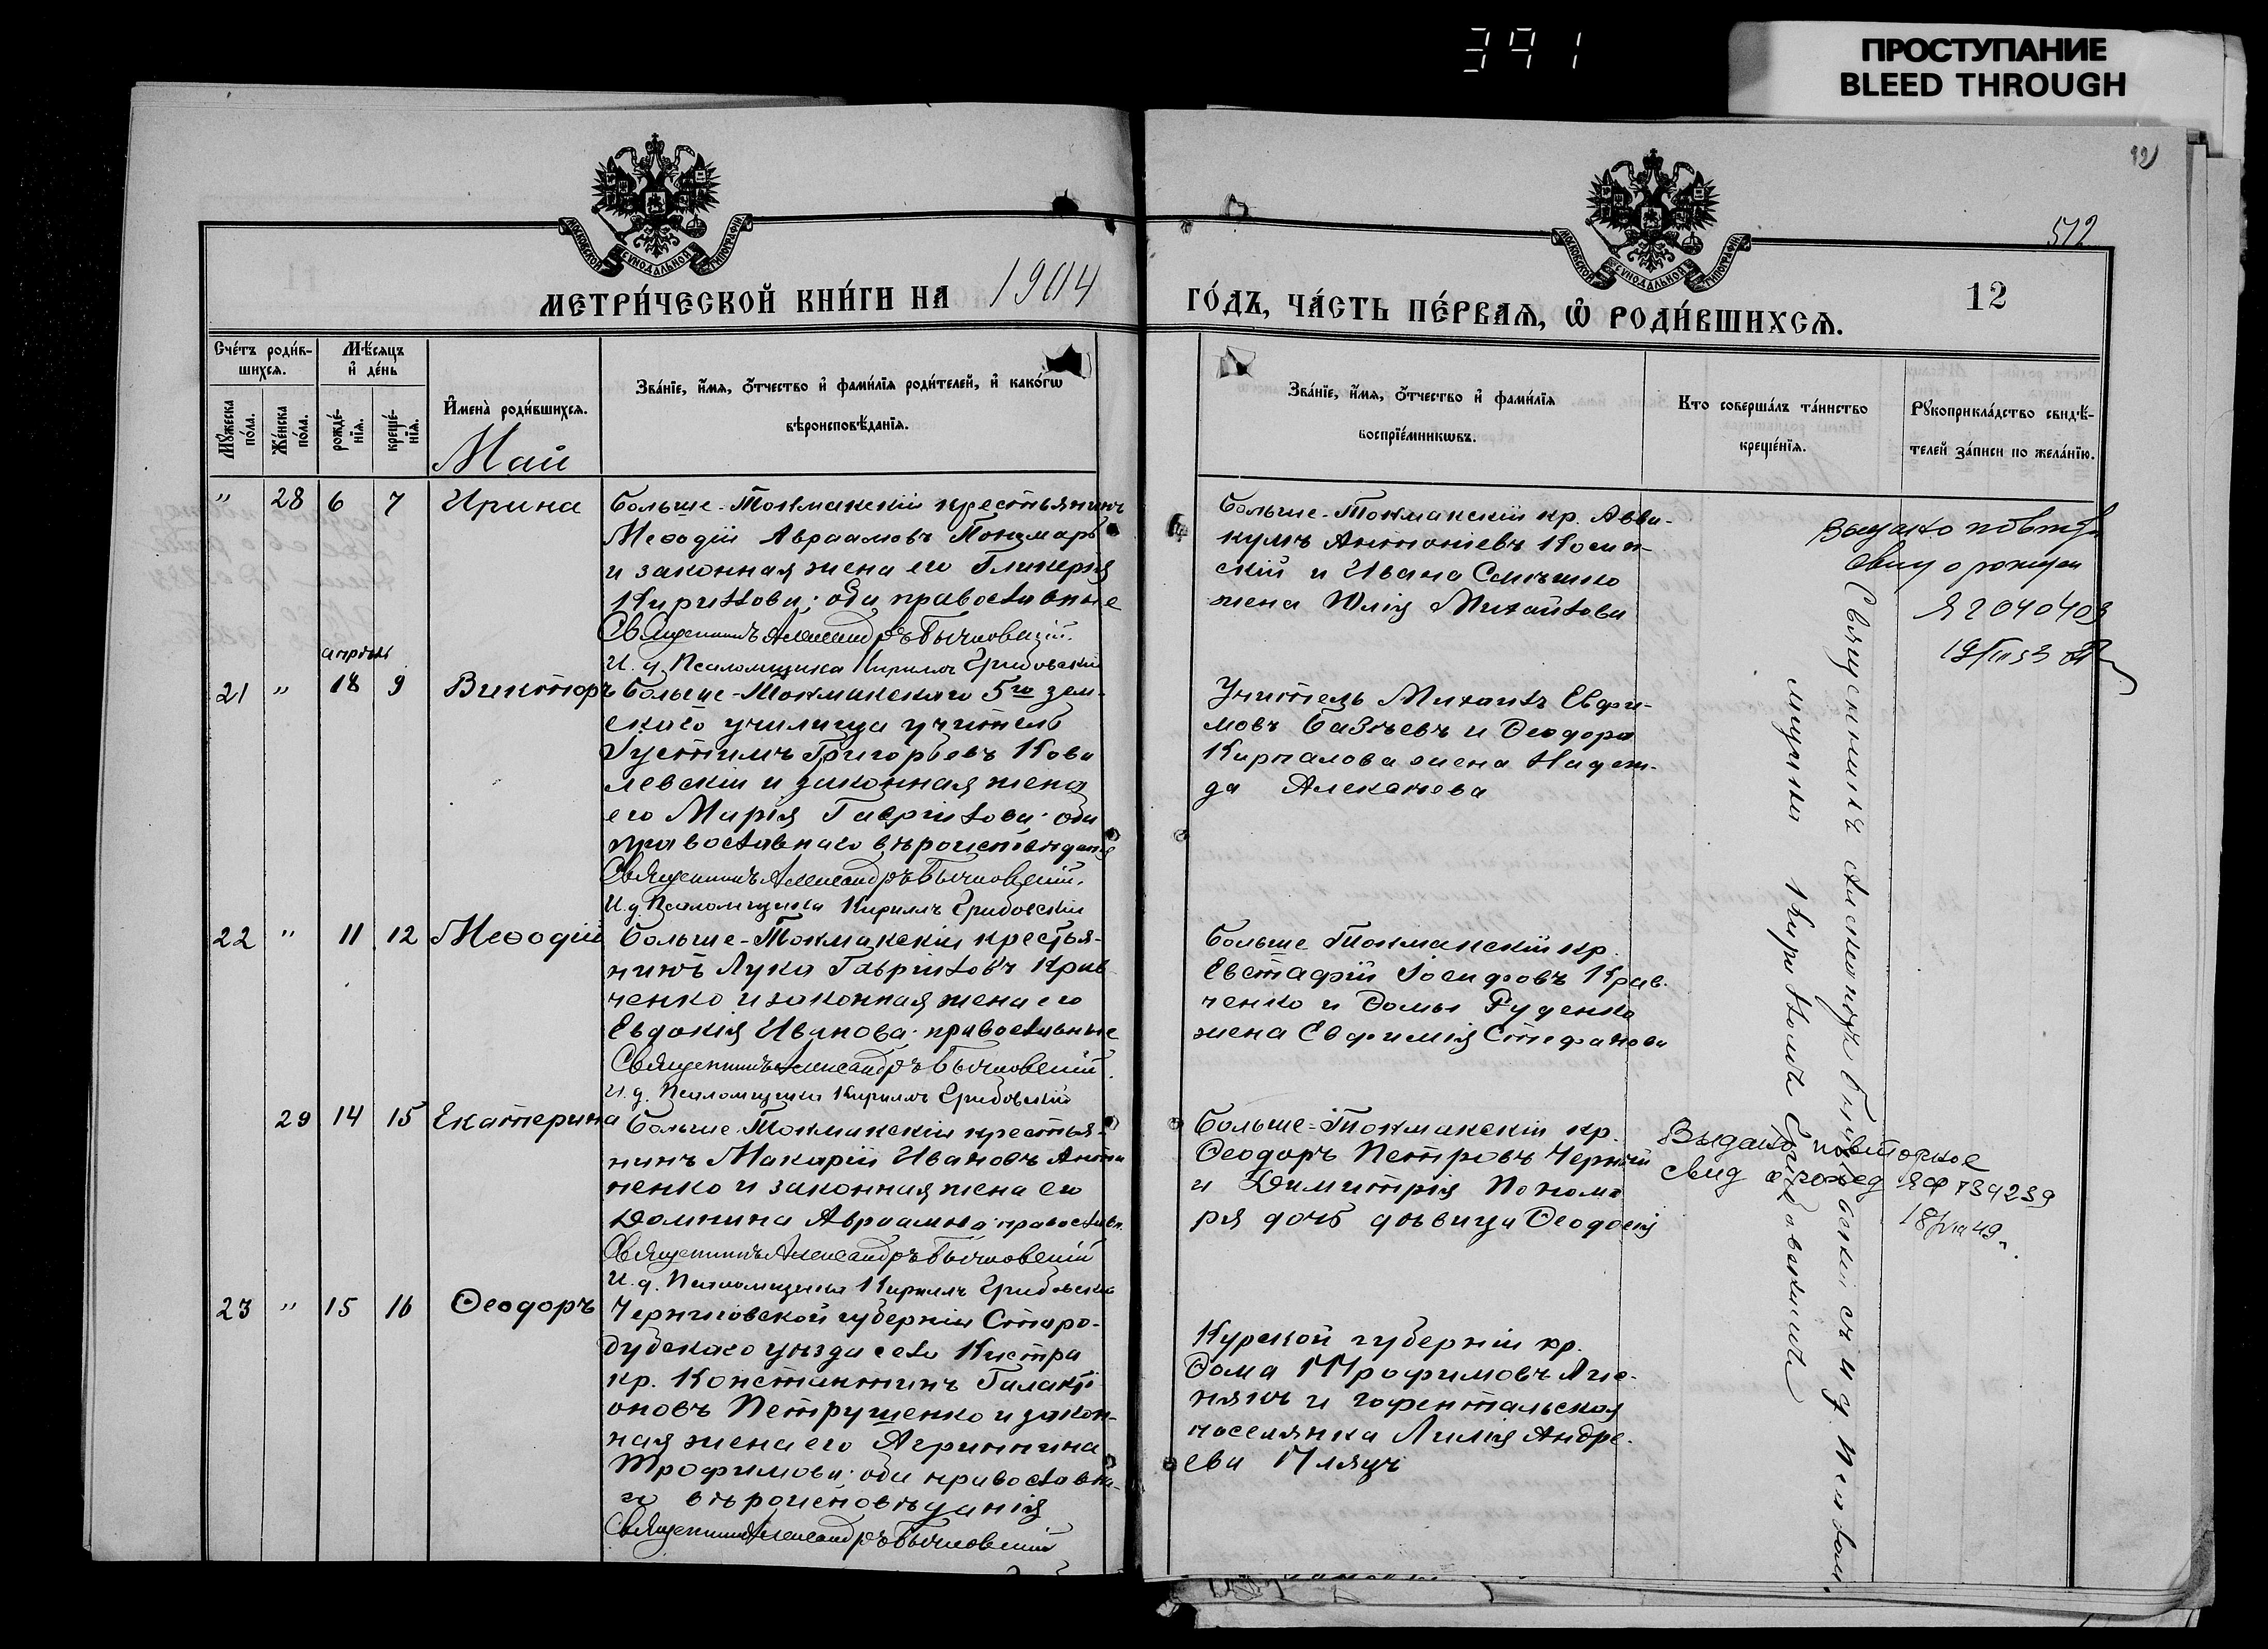 391
ПРОСТУПАНИЕ
BLEED THROUGH
512
МОСКОВСКОЙ СѴНОДАЛЬНОЙ ТИПОГРАФІИ
МОСКОВСКОЙ СѴНОДАЛЬНОЙ ТИПОГРАФІИ
МЕТРИ́ЧЕСКОЙ КНИ́ГИ НА 1904
ГО́ДЪ, ЧА́СТЬ ПЕ́РВАѦ, Ѽ РОДИ́ВШИХСѦ.
12
Сче́тъ роди́в-
шихсѧ.
Мꙋ́жеска по́ла.
Же́нска по́ла.
Мѣ́сяцъ
и҆ де́нь
рожде́-
нїѧ.
креще́-
нїѧ.
И҆мена̀ роди́вшихсѧ.
Май
Зва́нїе, и҆́мѧ, ѻ҆́тчество и҆ фами́лїѧ роди́телей, и҆ како́гѡ
вѣроисповѣ́данїѧ.
Зва́нїе, и҆́мѧ, ѻ҆́тчество и҆ фами́лїѧ
воспрїе́мникѡвъ.
Кто соверша́лъ та́инство
креще́нїѧ.
Рꙋкоприкла́дство свидѣ́-
телей за́писи по жела́нїю.
" 28 6 7 Ирина
Больше-Токмакскій крестьянинъ
Меѳодій Авраамовъ Пономарь
и законная жена его Гликерія
Кирилова; оба православные
Священникъ Александръ Бычковскій.
И. д. Псаломщика Кириллъ Грибовскій
Больше-Токмакскій кр. Авва-
кумъ Антоніевъ Косин-
скій и Ивана
жена Юлія Михайлова
Выдано повтор
свид о рожден
ЯЭ 040403
19/III 53
апрѣль
21 " 18 9 Викторъ
Больше-Токмакскаго 5го зем-
скаго училища учитель
Іустинъ Григорьевъ Кова
левскій и законная жена
его Марія Гаврилова; оба
православнаго вѣроисповѣданія
Священникъ Александръ Бычковскій.
И. д. Псаломщика Кириллъ Грибовскій
Учитель Михаилъ Евфи-
мовъ и Ѳеодора
жена Надеж-
да Алексѣева
22 " 11 12 Меѳодій
Больше-Токмакскій крестья-
нинъ Лука Гавриловъ Крав
ченко и законная жена его
Евдокія Иванова; православные
Священникъ Александръ Бычковскій.
И. д. Псаломщика Кириллъ Грибовскій
Больше Токмакскій кр.
Евстафій Іосифовъ Крав-
ченко и Ѳомы Руденко
жена Евфимія Стефанова
29 14 15 Екатерина
Больше-Токмакскій крестья-
нинъ Макарій Ивановъ Анто
ненко и законная жена его
Домнина Авраамова; православн.
Священникъ Александръ Бычковскій
И. д. Псаломщика Кириллъ Грибовскій
Больше-Токмакскій кр.
Ѳеодоръ Петровъ Черный
и Димитрія Понома
ря дочь дѣвица Ѳеодосія
Выдано повторное
свид о рожд ЯФ 734239
49 г.
23 " 15 16 Ѳеодоръ
Черниговской губерніи Старо-
дубскаго уѣзда села Кистра
кр. Константинъ Галакті
оновъ Петрушенко и закон-
ная жена его Агриппина
Трофимова; оба православна-
го вѣроисповѣданія
Священникъ Александръ Бычковскій
Курской губерніи кр.
Ѳома Трофимовъ
и гофентальская
поселянка Лилія Андре-
ева
Священникъ Александръ Бычковскій съ и. д. Псалом-
щика Кирилломъ Грибовскимъ